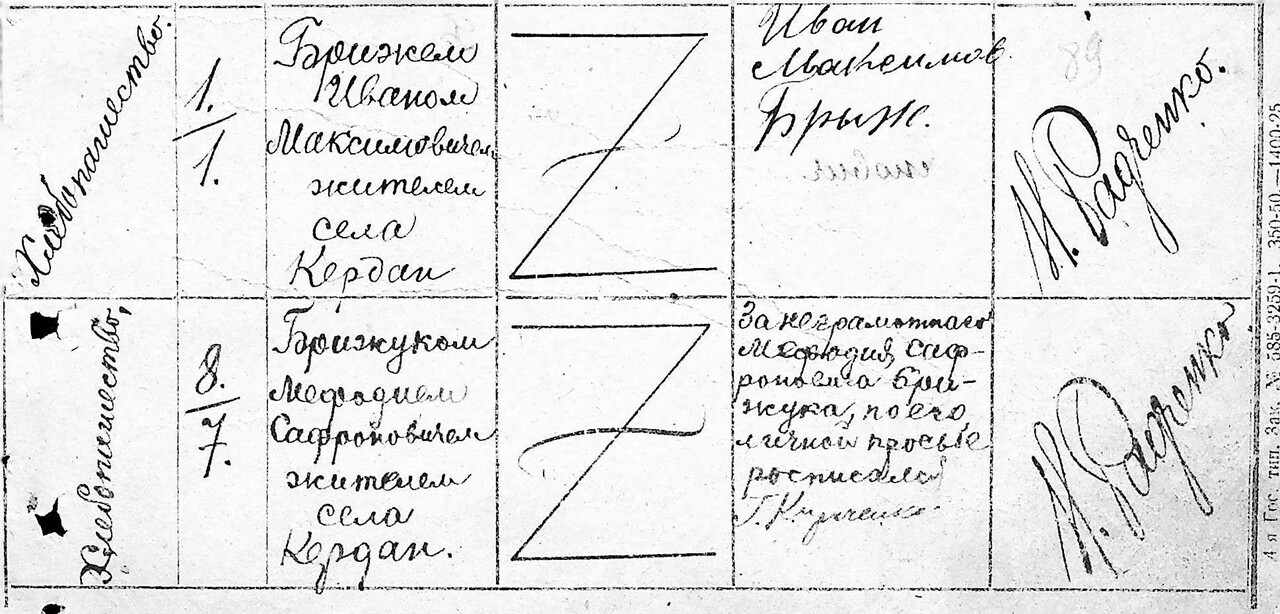 Хлебопашество.
1.
1.
Брижем
Иваном
Максимовичем
жителем
села
Кердан
Иван
Максимов
Брыж.
89
Н. Радченко.
Хлебопашество,
8.
7.
Брижуком
Мефодием
Сафроновичем
жителем
села
Кердан.
За неграмотнаго
Мефодия Саф-
роновича Бри-
жука, по его
личной просьбе
росписался
Г.
Н. Радченко
4-я Гос. тип. Зак. № 585-3259-1. 350-50—1400-25